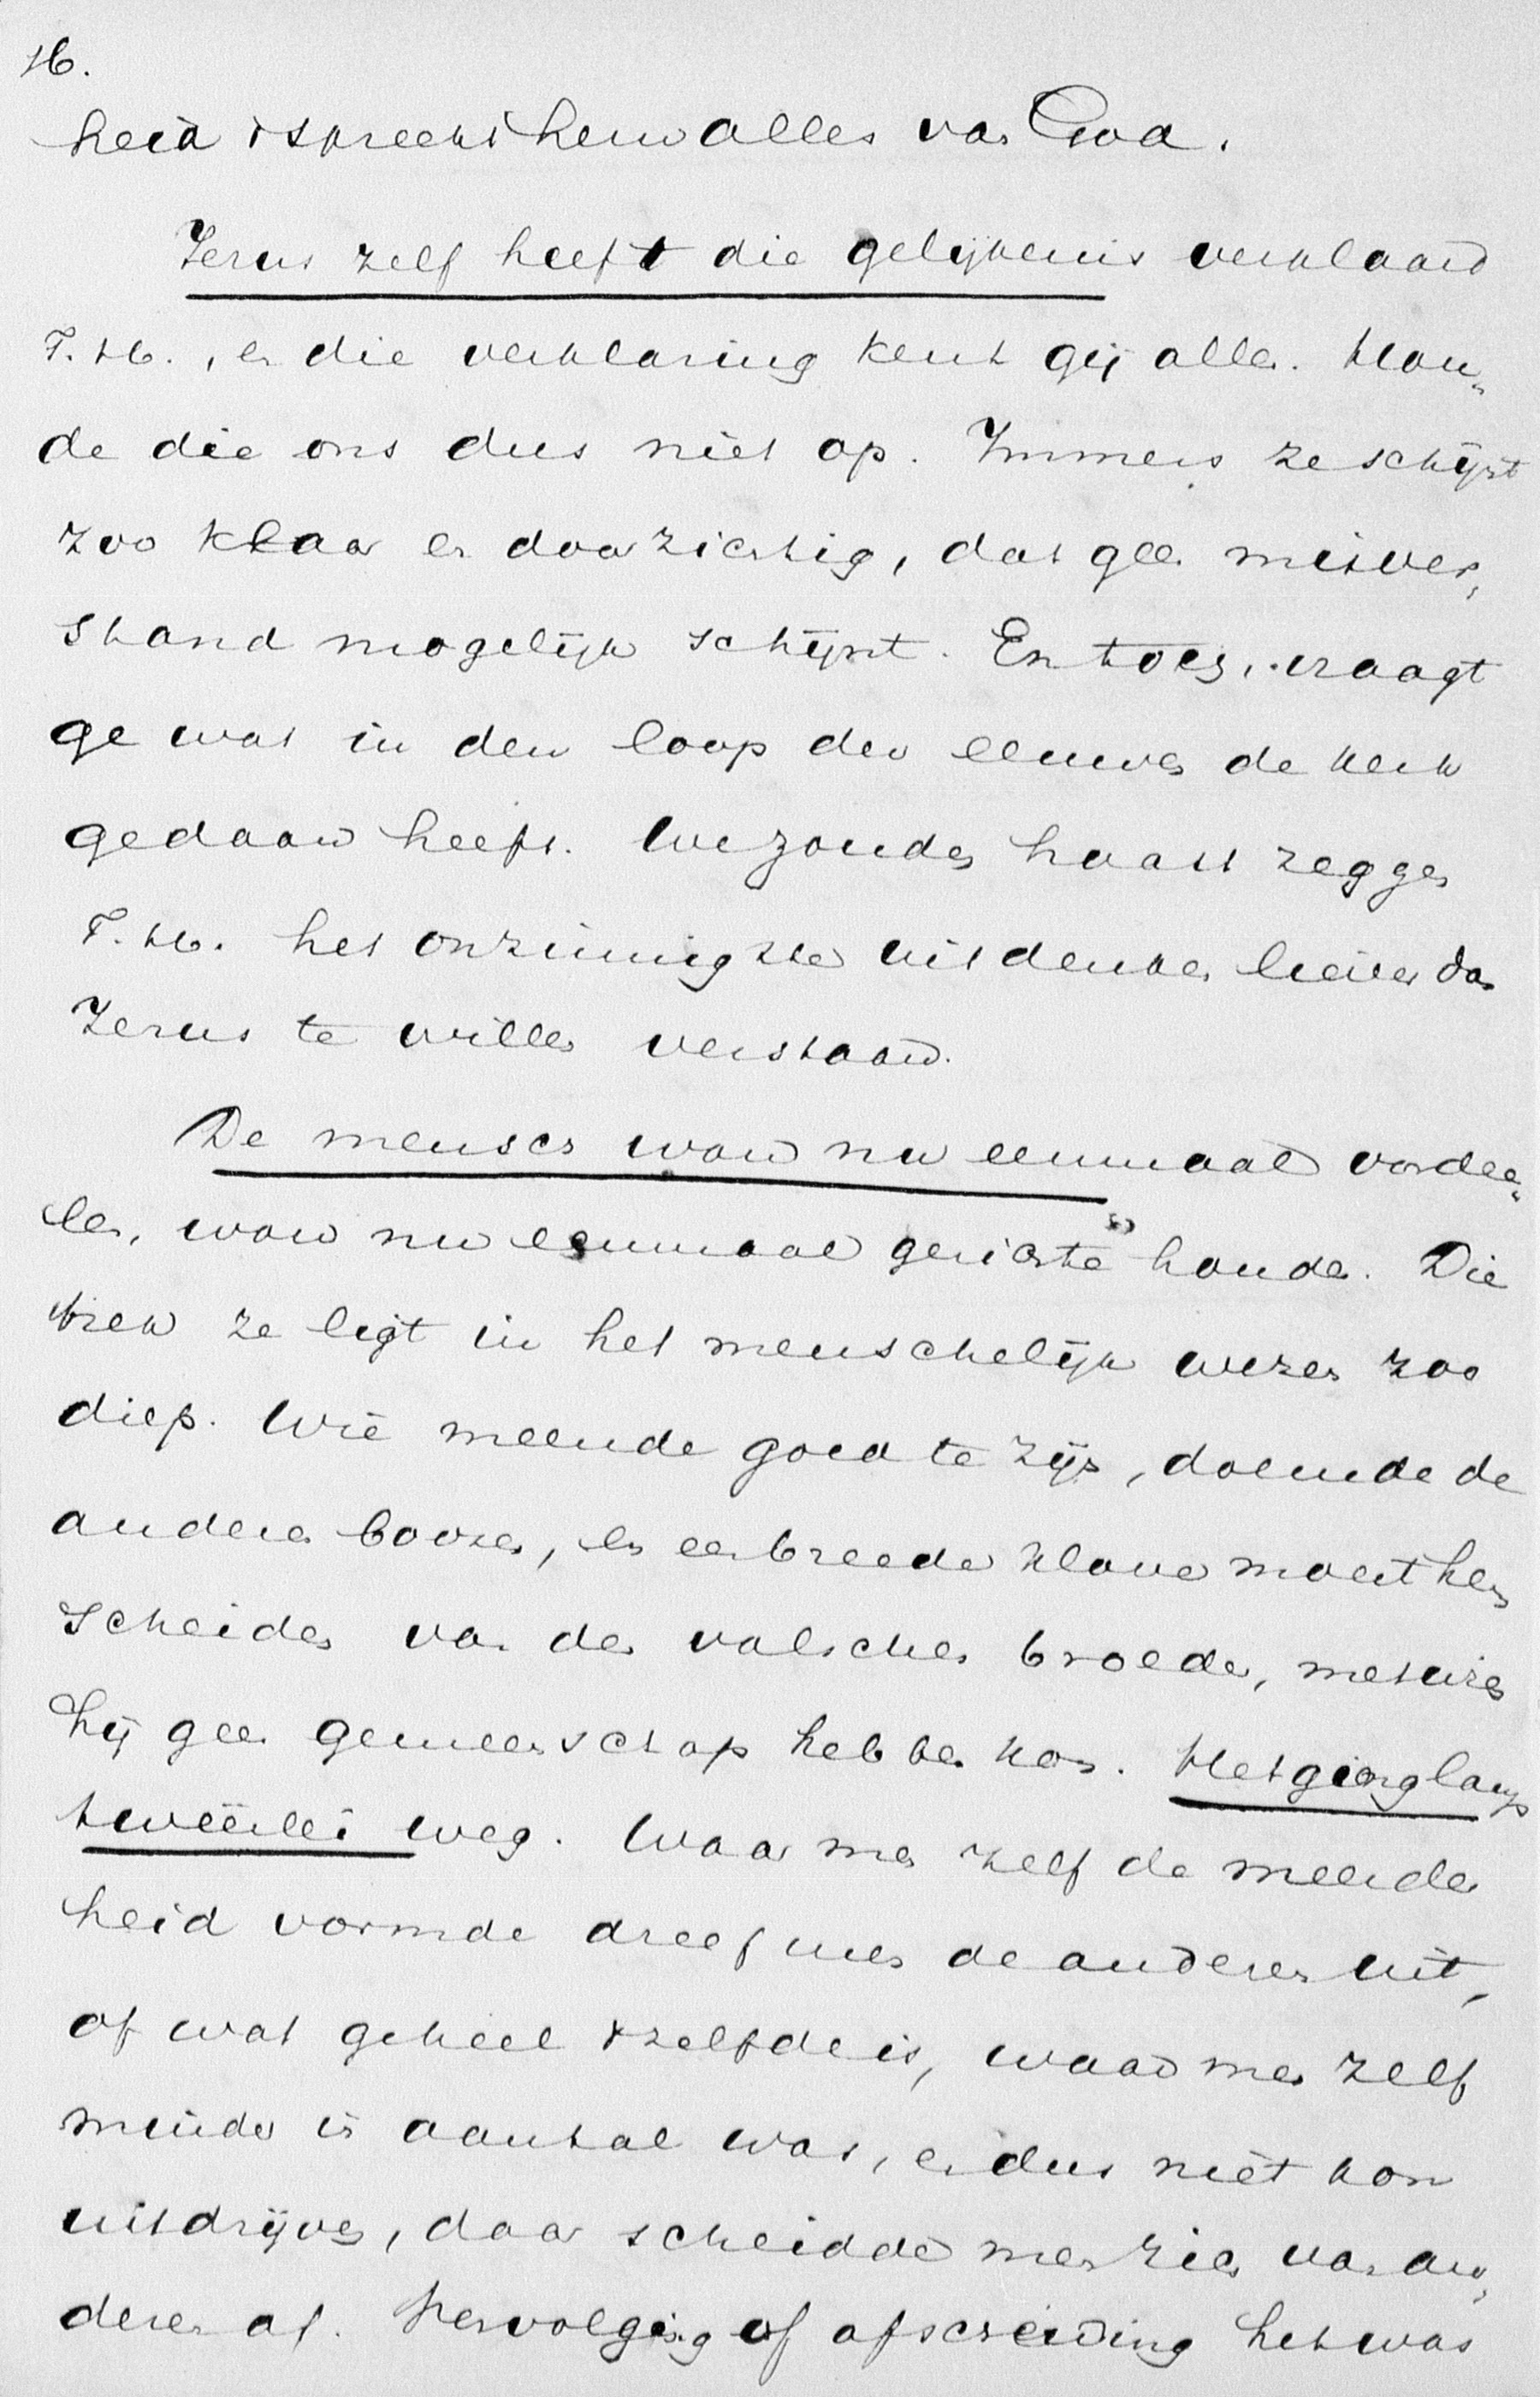 16.
heid & spreekt hun alles van God.
Jezus zelf heeft die gelijkenis verklaard
T. H., en die verklaring kent gij allen. Hou„
de die ons dus niet op. Immers ze schijnt
zoo klaar en doorzichtig, dat geen misver„
stand mogelijk schijnt. En toch, vraagt
ge wat in den loop der eeuwen de kerk
gedaan heeft. We zouden haast zeggen
T. H. het onzinnigste uitdenken liever dan
Jezus te willen verstaan.
De mensch wou nu eenmaal oordee„
len, wou nu eenmaal gerichte houden. Die
trek ze ligt in het menschelijk wezen zoo
diep. Wie meende goed te zijn, doemde de
andere boozen, en een breede klove moest hen
scheiden van den valschen broeder, met wien
hij geen gemeenschap hebben kon. Het ging langs
tweeërlei weg. Waar men zelf de meerder
heid vormde dreef men de anderen uit,
of wat geheel 't zelfde is, waar men zelf
minder in aantal was, en dus niet kon
uitdrijven, daar scheidde men zich van an„
deren af. Vervolging of afscheiding het was